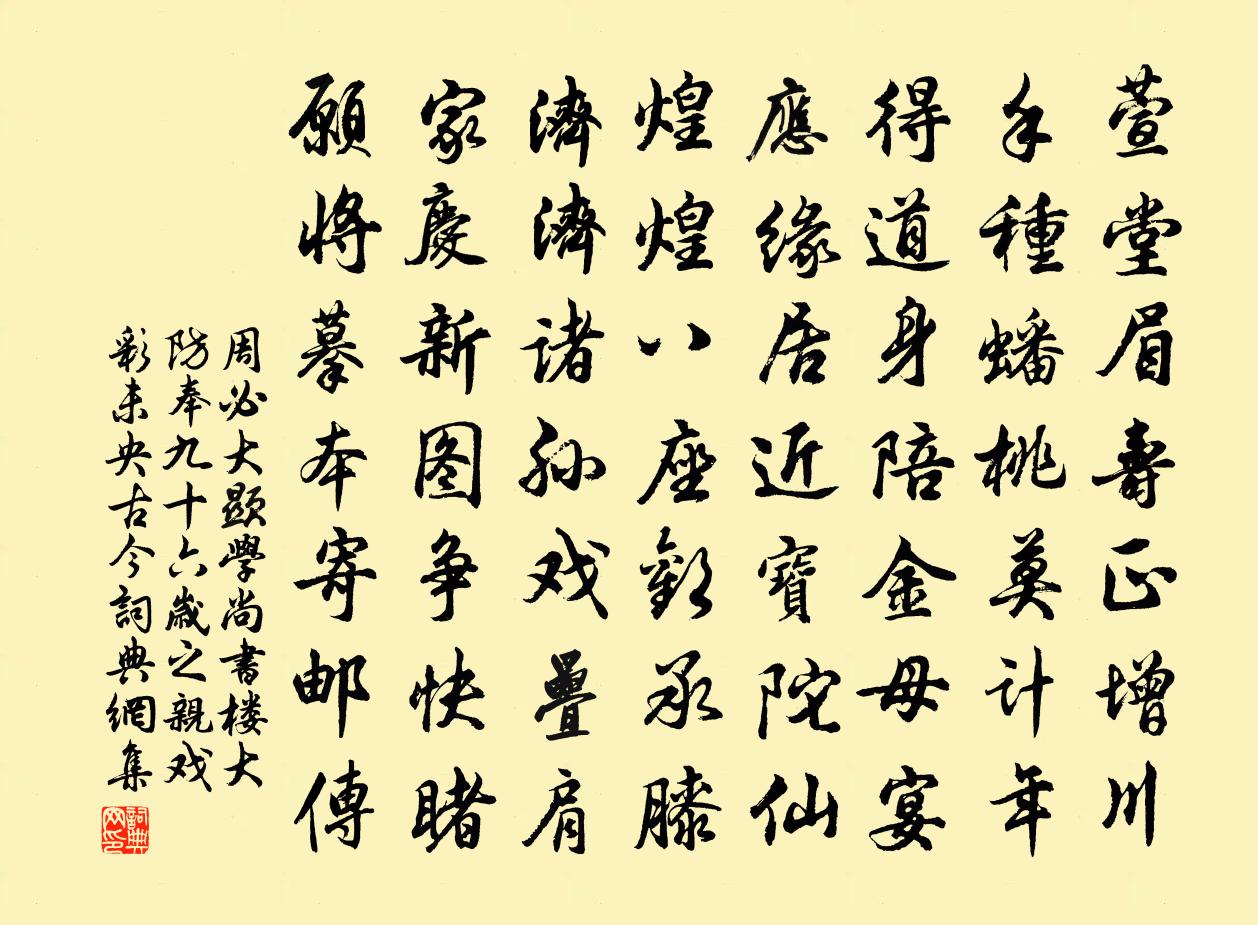 萱堂眉壽正增川
手種蟠桃莫计年
得道身陪金母宴
應缘居近寶陀仙
煌煌八座歡承膝
濟濟诸孙戏疊肩
家慶新图争快睹
願將摹本寄邮傳
周必大顯學尚書楼大
防奉九十六歲之親戏
彩未央古今詞典網集
詞典網印